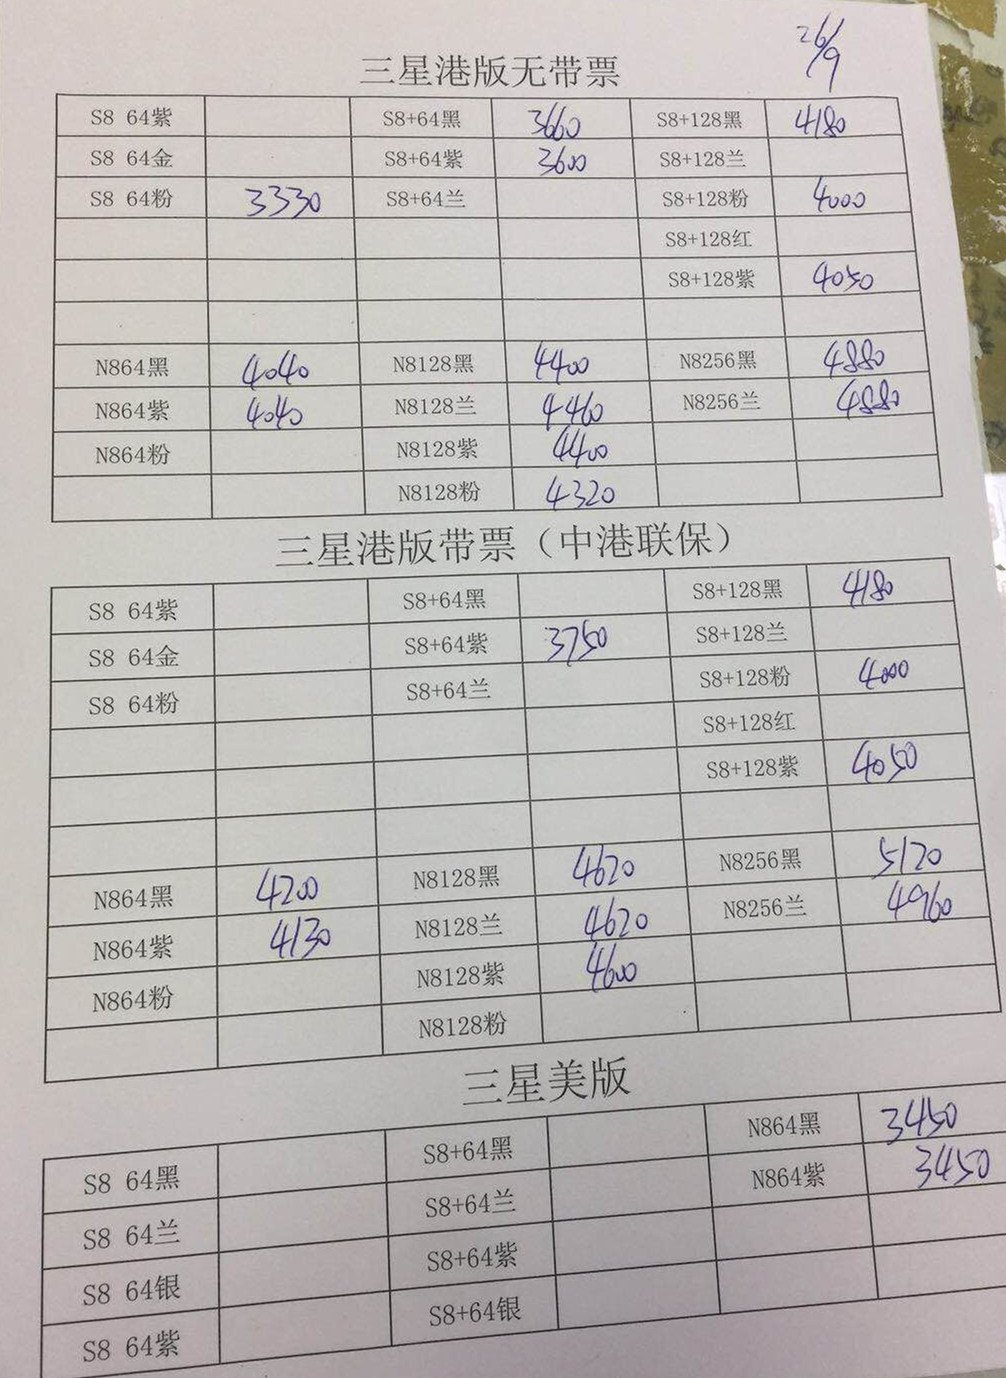 26/9
三星港版无带票
S8 64紫 S8+64黑 3660 S8+128黑 4180
S8 64金 S8+64紫 3600 S8+128兰
S8 64粉 3330 S8+64兰 S8+128粉 4000
S8+128红
S8+128紫 4050
N864黑 4040 N8128黑 4400 N8256黑 4880
N864紫 4040 N8128兰 4460 N8256兰 4880
N864粉 N8128紫 4400
N8128粉 4320
三星港版带票（中港联保）
S8 64紫 S8+64黑 S8+128黑 4180
S8 64金 S8+64紫 3750 S8+128兰
S8 64粉 S8+64兰 S8+128粉 4000
S8+128红
S8+128紫 4050
N864黑 4200 N8128黑 4620 N8256黑 5120
N864紫 4130 N8128兰 4620 N8256兰 4960
N864粉 N8128紫 4600
N8128粉
三星美版
S8 64黑 S8+64黑 N864黑 3450
S8 64兰 S8+64兰 N864紫 3450
S8 64银 S8+64紫
S8 64紫 S8+64银